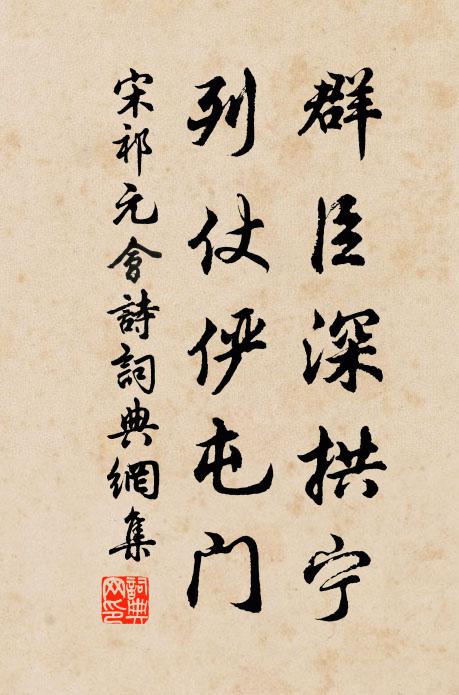 群臣深拱宁
列仗俨屯门
宋祁元會詩詞典網集
詞典
网印